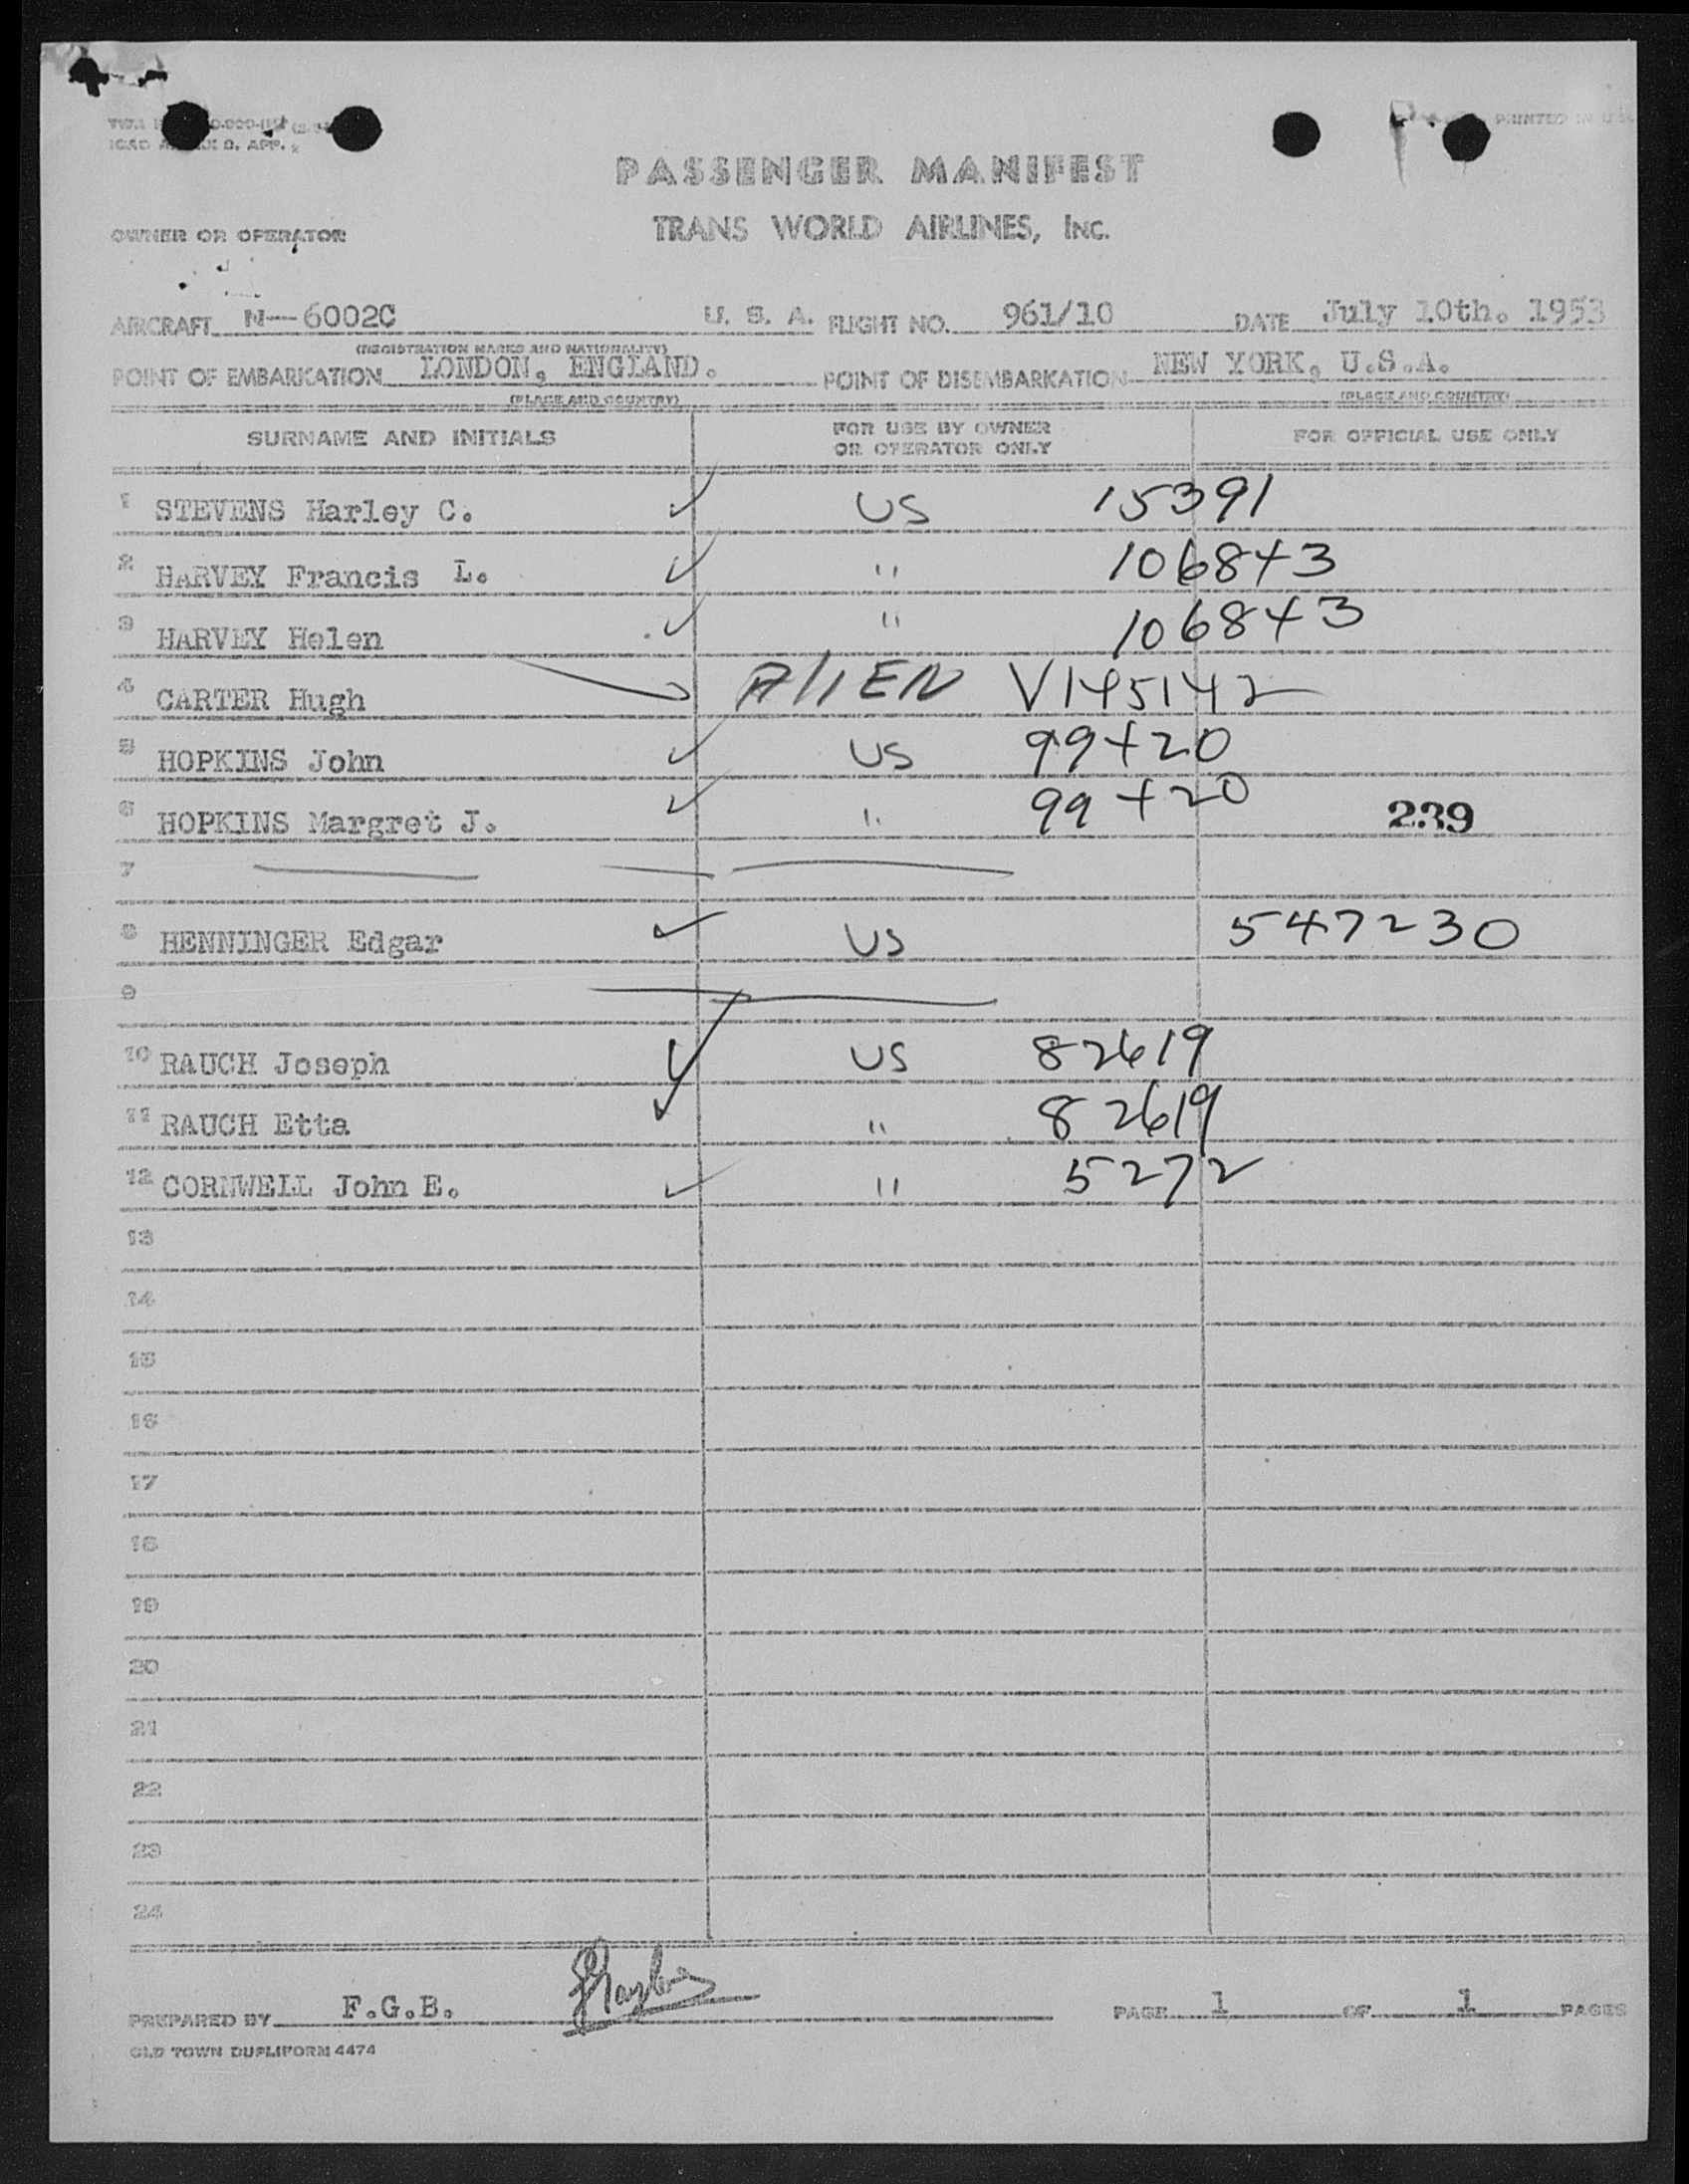 PRINTED IN U
PASSENGER MANIFEST
OWNER OR OPERATOR TRANS WORLD AIRLINES, INC.
AIRCRAFT N--6002C U. S. A. FLIGHT NO. 961/10 DATE July 10th. 1953
(REGISTRATION MARKS AND NATIONALITY)
POINT OF EMBARKATION LONDON, ENGLAND. POINT OF DISEMBARKATION NEW YORK, U.S.A.
(PLACE AND COUNTRY) (PLACE AND COUNTRY)
SURNAME AND INITIALS FOR USE BY OWNER OR OPERATOR ONLY FOR OFFICIAL USE ONLY
1 STEVENS Harley C. ✓ US 15391
2 HARVEY Francis L. ✓ " 106843
3 HARVEY Helen ✓ " 106843
4 CARTER Hugh AlIEN V145142
5 HOPKINS John ✓ US 99420
6 HOPKINS Margret J. ✓ " 99420 239
7
8 HENNINGER Edgar ✓ US 547230
9
10 RAUCH Joseph ✓ US 82619
11 RAUCH Etta ✓ " 82619
12 CORNWELL John E. ✓ " 5272
13
14
15
16
17
18
19
20
21
22
23
24
PREPARED BY F.G.B. PAGE 1 OF 1 PAGES
OLD TOWN DUPLIFORM 4474